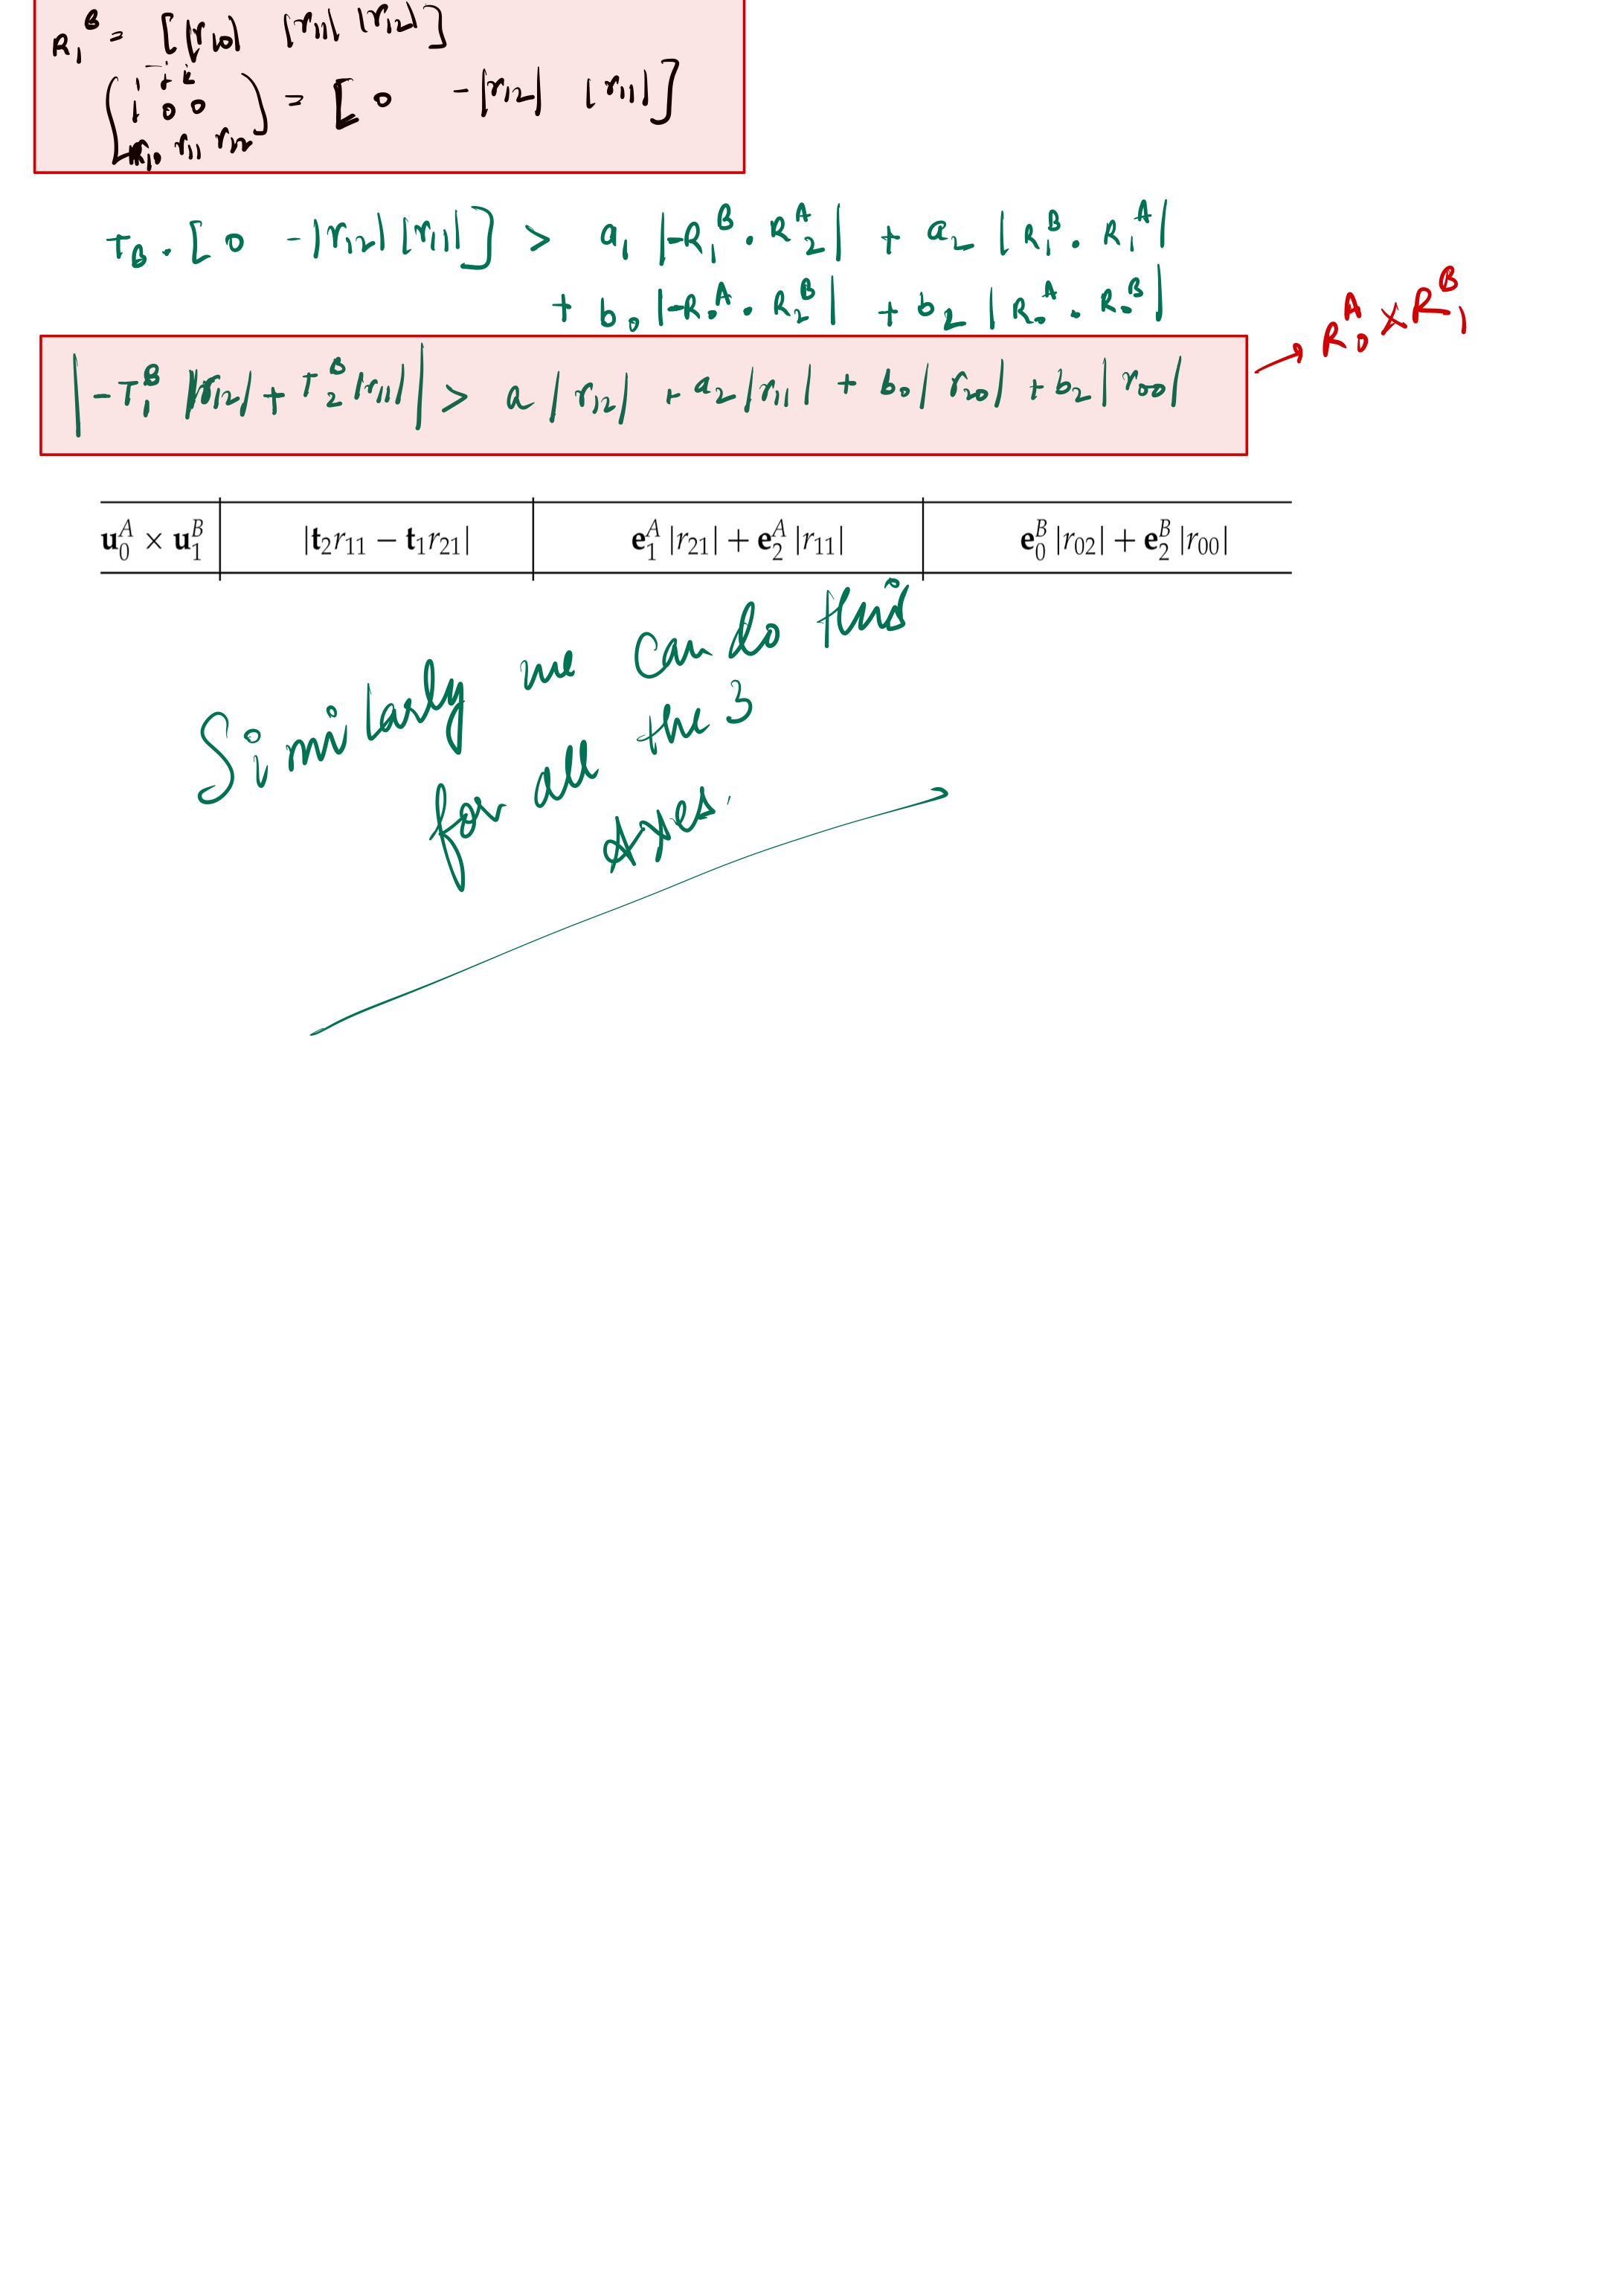 R₁ᴮ = [|r₁₀| |r₁₁| |r₁₂|]
i j k
( 1 0 0 ) = [ 0 -|r₁₂| |r₁₁| ]
r₁₀ r₁₁ r₁₂
T_B · [ 0 -|r₁₂| |r₁₁| ] > a₁ |-R₁ᴮ · R₂ᴬ| + a₂ |R₁ᴮ · R₁ᴬ|
+ b₀ |-R₀ᴬ · R₂ᴮ| + b₂ |R₀ᴬ · R₀ᴮ|
R₀ᴬ × R₁ᴮ
|-T₁ᴮ |r₁₂| + T₂ᴮ |r₁₁|| > a |r₁₂| + a₂ |r₁₁| + b₀ |r₂₀| + b₂ |r₀₀|
u₀ᴬ × u₁ᴮ |t₂r₁₁ − t₁r₂₁| e₁ᴬ |r₂₁| + e₂ᴬ |r₁₁| e₀ᴮ |r₀₂| + e₂ᴮ |r₀₀|
Similarly we can do this
for all the 3
Axes.